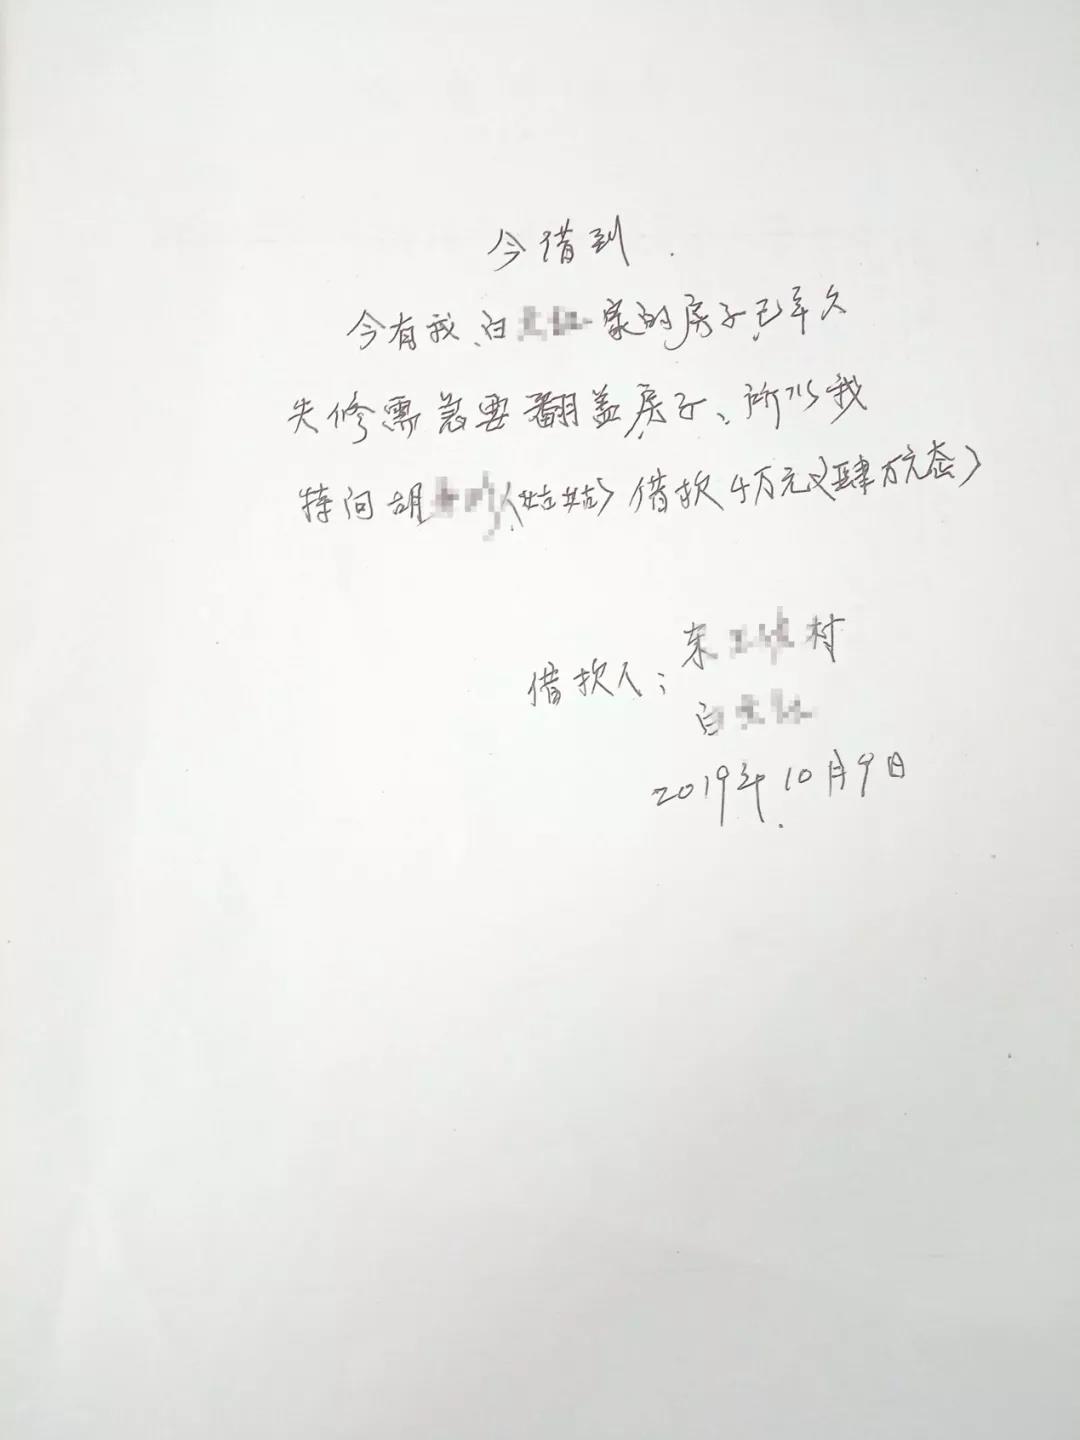 今借到.
今有我、白家的房子已年久
失修需急要翻盖房子、所以我
特问胡(姑姑)借款4万元(肆万元态)
借款人:东村
白
2019年10月9日